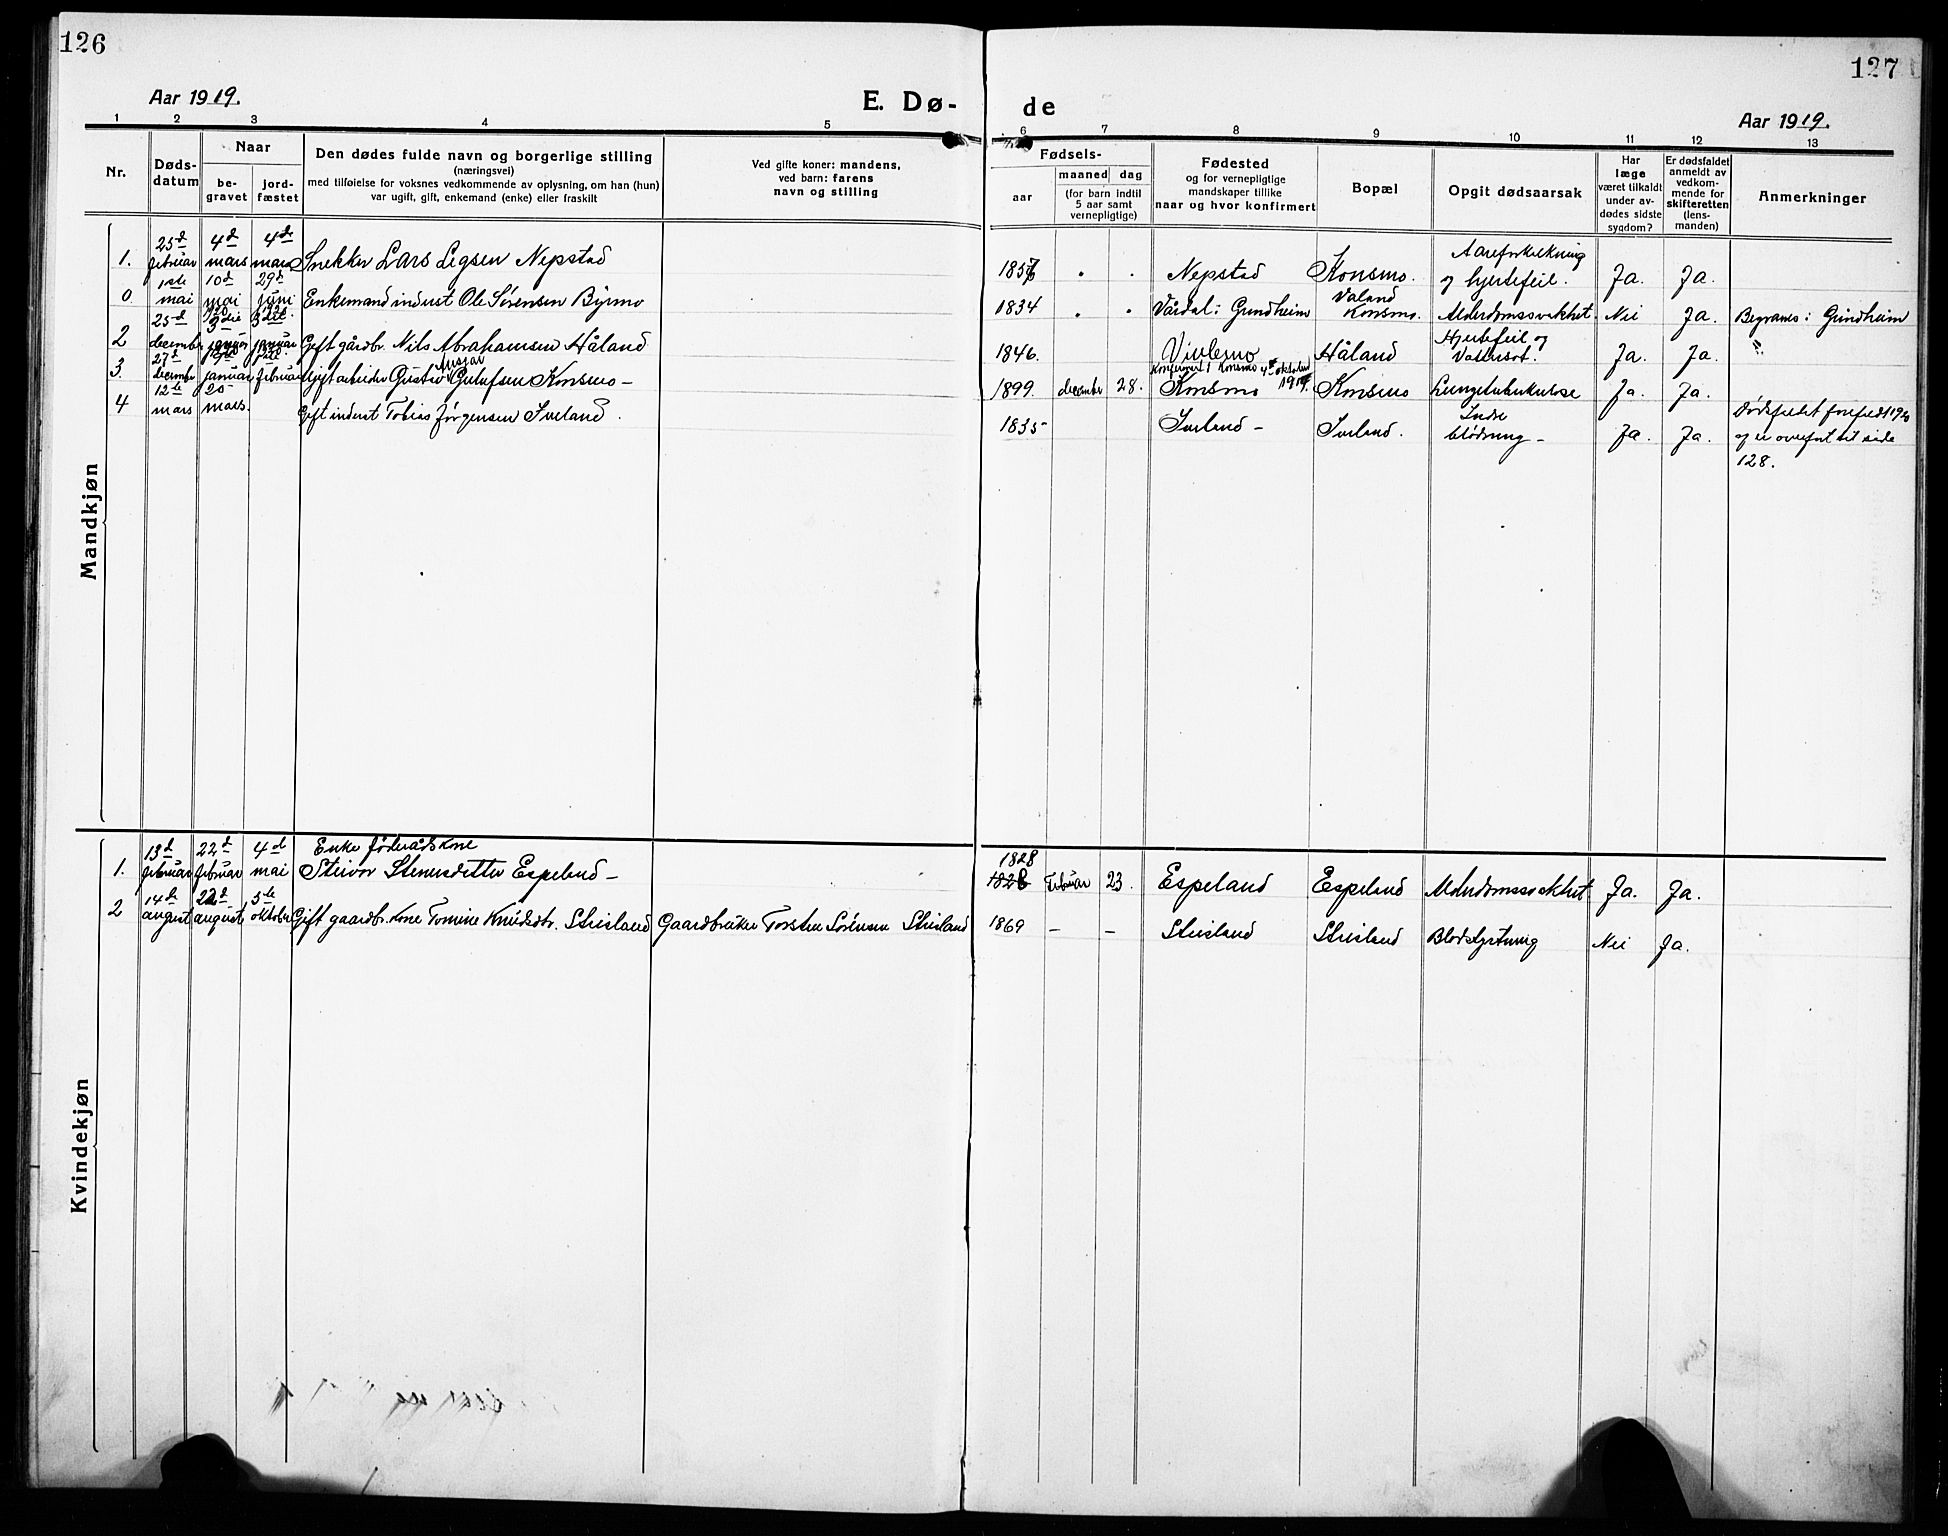 126
127
Aar 1919.
E. Dø-
de
Aar 1919.
1 2 3 4 5 6 7 8 9 10 11 12 13
Nr.
Døds-
datum
Naar
be-
gravet
jord-
fæstet
Den dødes fulde navn og borgerlige stilling
(næringsvei)
med tilføielse for voksnes vedkommende av oplysning, om han (hun)
var ugift, gift, enkemand (enke) eller fraskilt
Ved gifte koner: mandens,
ved barn: farens
navn og stilling
Fødsels-
aar
maaned dag
(for barn indtil
5 aar samt
vernepligtige)
Fødested
og for vernepligtige
mandskaper tillike
naar og hvor konfirmert
Bopæl
Opgit dødsaarsak
Har
læge
været tilkaldt
under av-
dødes sidste
sygdom?
Er dødsfaldet
anmeldt av
vedkom-
mende for
skifteretten
(lens-
manden)
Anmerkninger
Mandkjøn
1. 25d februar 4d mars 4de mars Snekker Lars Nepstad 1857 Nepstad Konsmo. Aareforkalkning og hjertefeil. Ja. Ja.
0 1ste mai 10d mai 29d juni Enkemand inderst Ole Sørensen Byrmo 1834 Vårdal i Grindheim Valand Konsmo. Alderdomssvakhet. Nei Ja. Begraves i Grindheim
2 25d december 3die januar januar Gift gårdbr. Nils Abrahamsen Håland 1846. Håland Hjertefeil og Vattersot. Ja. Ja.
3. 27d december januar februar Ugift arbeider Gustav Konsmo – 1899. december 28. Konfirmert i Konsmo 4de oktober Konsmo Konsmo Lungetuberkulose Ja. Ja.
4 12te mars 20 mars. Gift inderst Tobias Jørgensen Iveland. 1835 Iveland – Iveland. Indre blödning – Ja. Ja. Dødsfaldet
og er overført til side
128.
Kvindekjøn
1. 13d februar 22d februar 4d mai Enke föderådskone Espeland – 1828 Februar 23. Espeland Espeland Alderdomssvakhet. Ja. Ja.
2 14d august 22d august 5te oktober Gift gaardbr. kone Tomine Knudsdtr. Stusland Gaardbruker Torsten Sörensen Stusland 1869 – – Stusland Stusland Blodstyrtning Nei Ja.